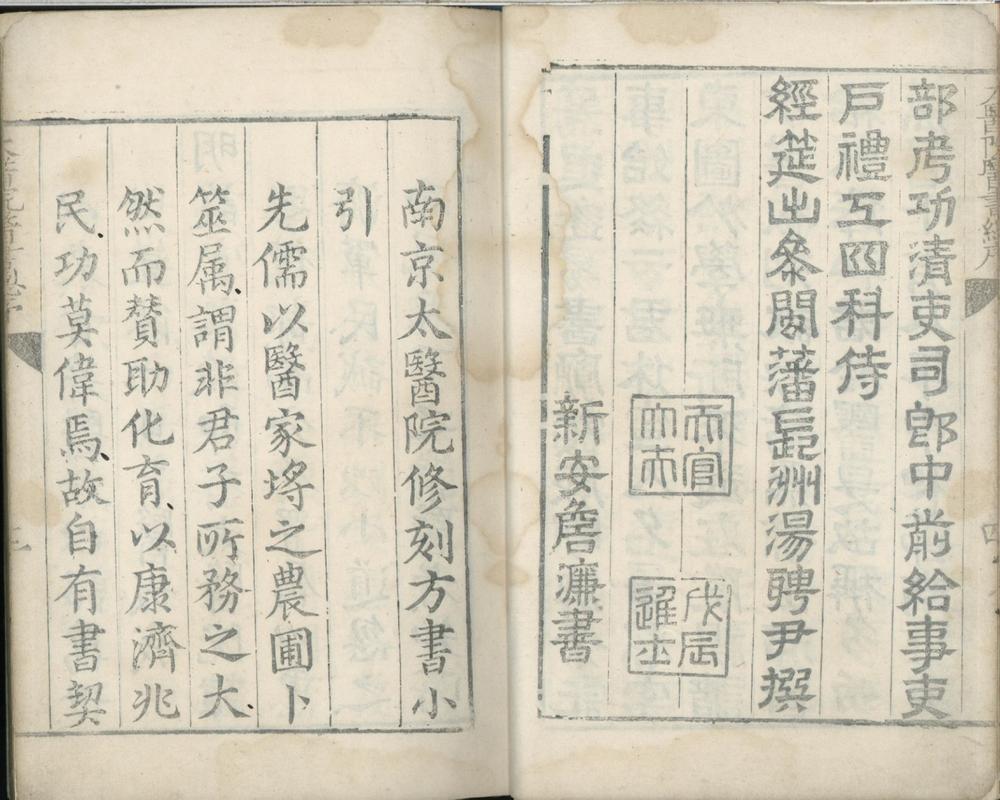 部考功清吏司郎中前給事吏
戶禮工四科侍
經筵出參閩藩長洲湯聘尹撰
天官
大夫
戊辰
進士
新安詹濂書
南京太醫院修刻方書小
引
先儒以醫家埒之農圃卜
筮属謂非君子所務之大
然而賛助化育以康濟兆
民功莫偉焉故自有書契